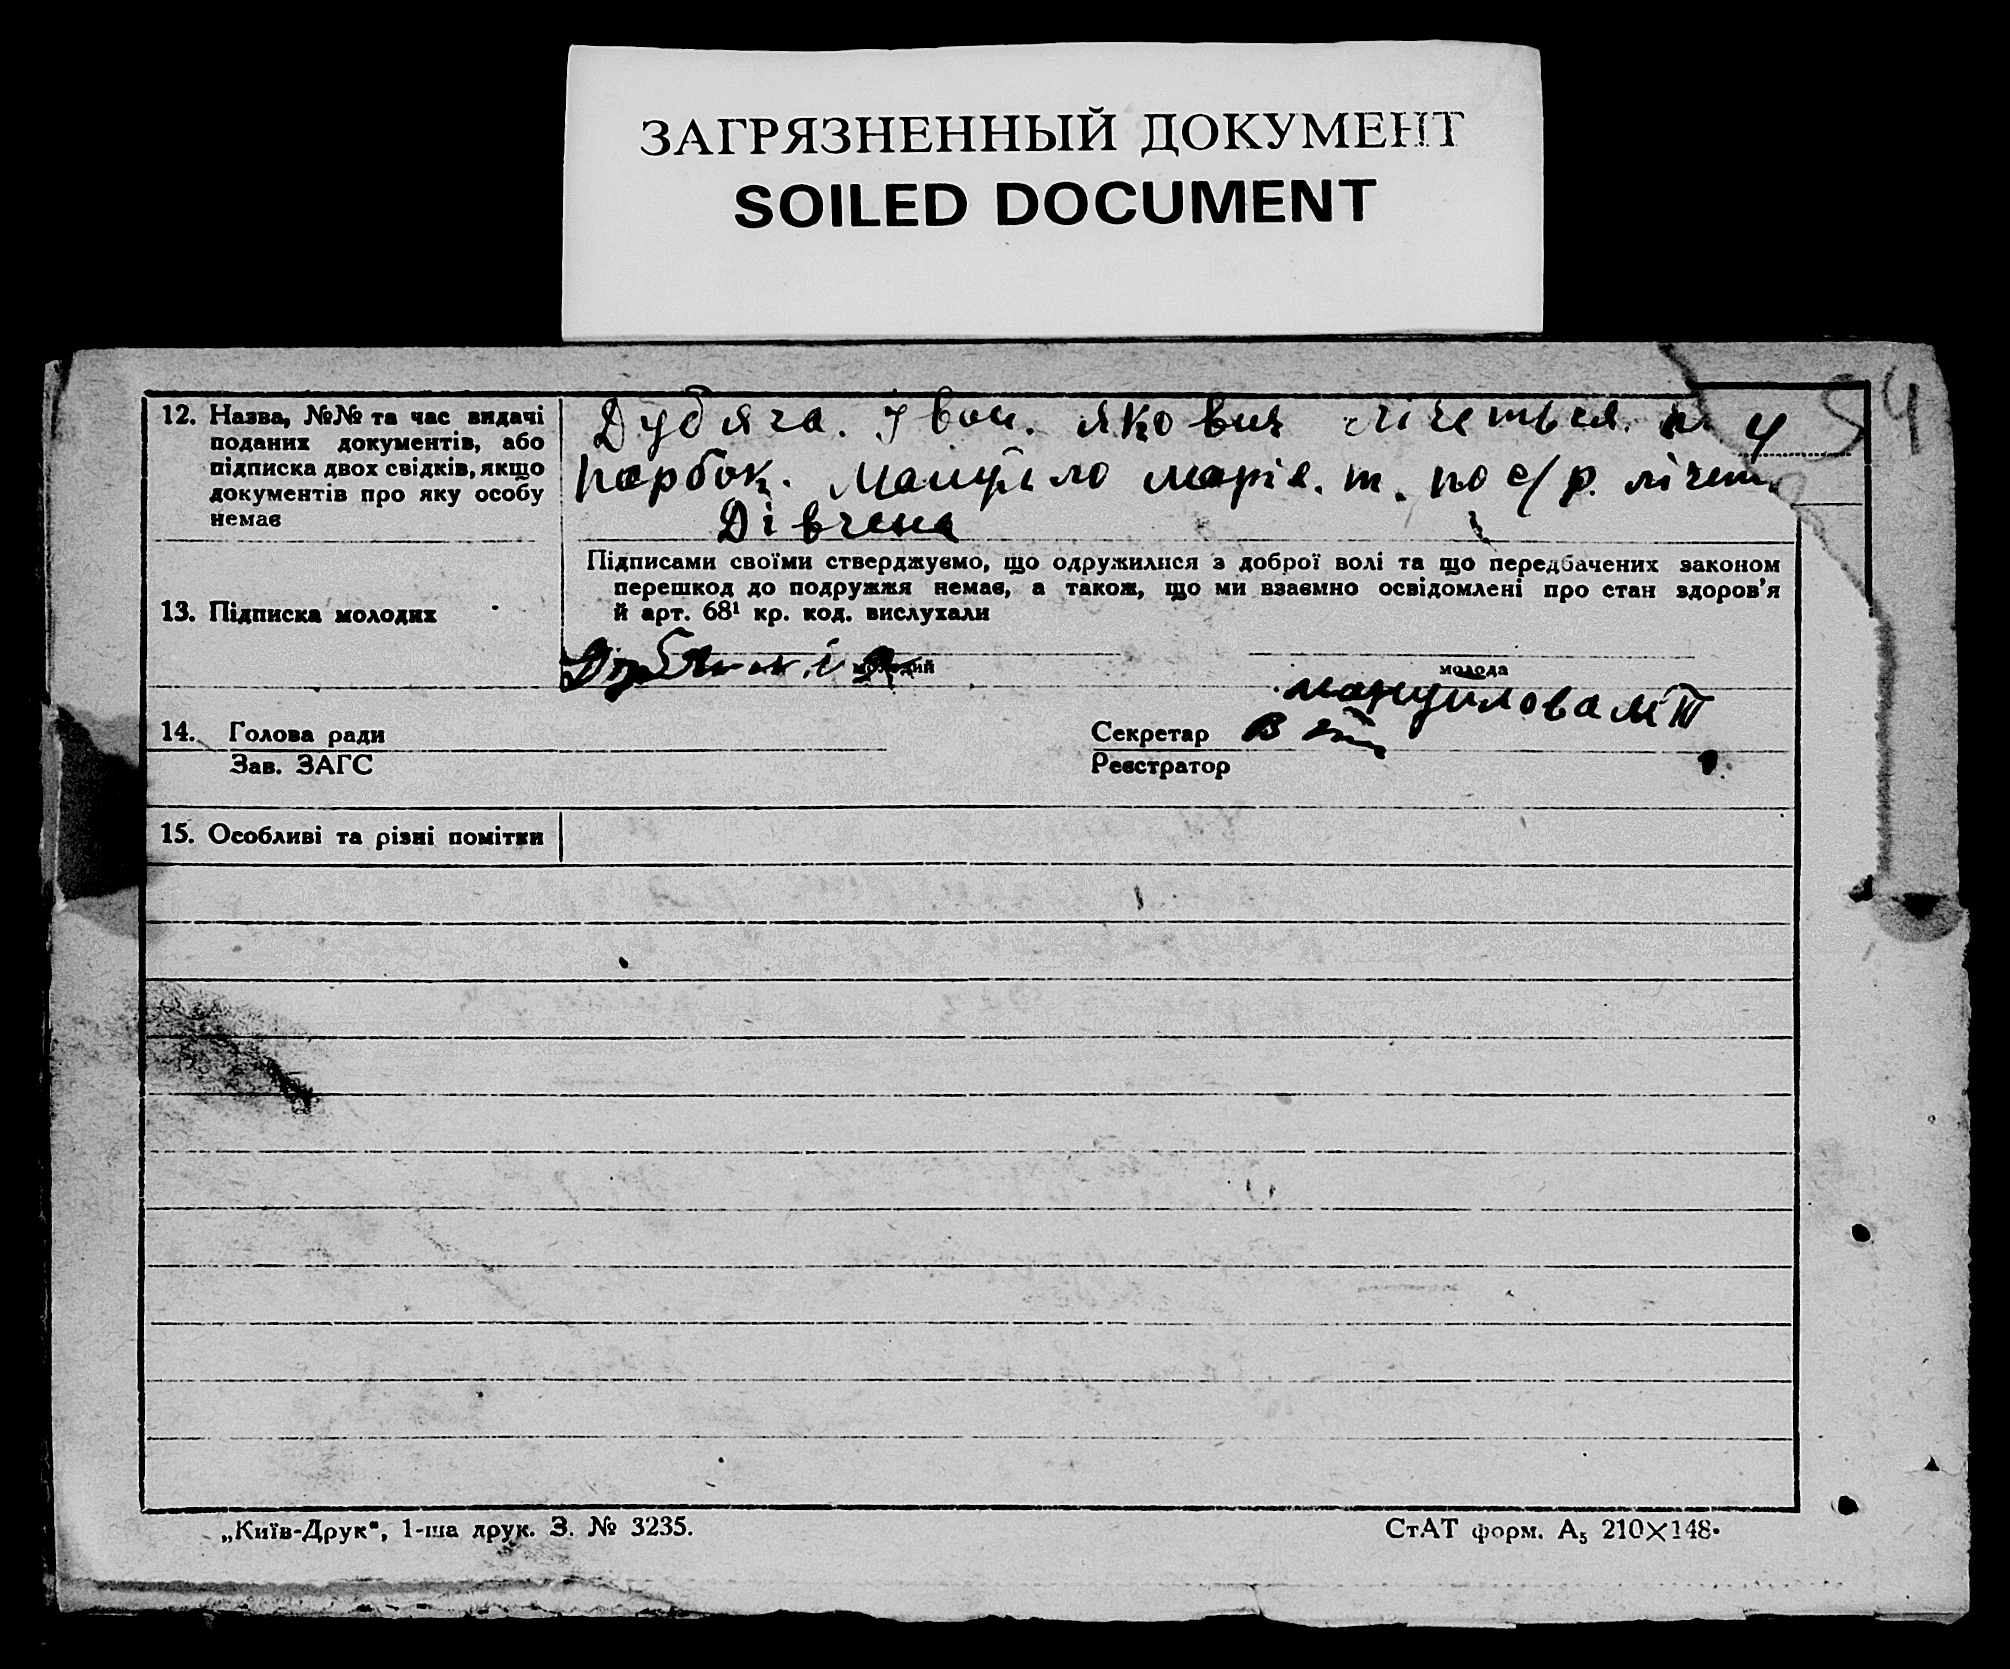 ЗАГРЯЗНЕННЫЙ ДОКУМЕНТ
SOILED DOCUMENT
12. Назва, №№ та час видачі
поданих документів, або
підписка двох свідків, якщо
документів про яку особу
немає
Дубяга. Іван. Якович лічеться.
парбок. Мануїло марія. т. по с/р. лічеть
Дівчена
Підписами своїми стверджуємо, що одружилися з доброї волі та що передбачених законом
перешкод до подружжя немає, а також, що ми взаємно освідомлені про стан здоров'я
й арт. 68¹ кр. код. вислухали
13. Підписка молодих
молодий
молода
мануилова М Т
14. Голова ради
Зав. ЗАГС
Секретар
Реєстратор
15. Особливі та різні помітки
„Київ-Друк", 1-ша друк. З. № 3235.
СтАТ форм. А₅ 210×148.